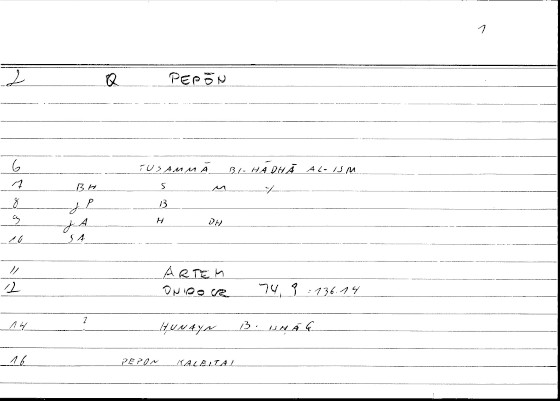 1
2 Q PEPŌN
6 TUSAMMĀ BI-HĀDHĀ AL-ISM
7 BH S M Y
8 JP B
9 JA H DH
10 SA
11 ARTEM
12 ONIROCR 74, 9 = 136.14
14 1 ḤUNAYN B. ISḤĀQ
16 PEPON KALEITAI